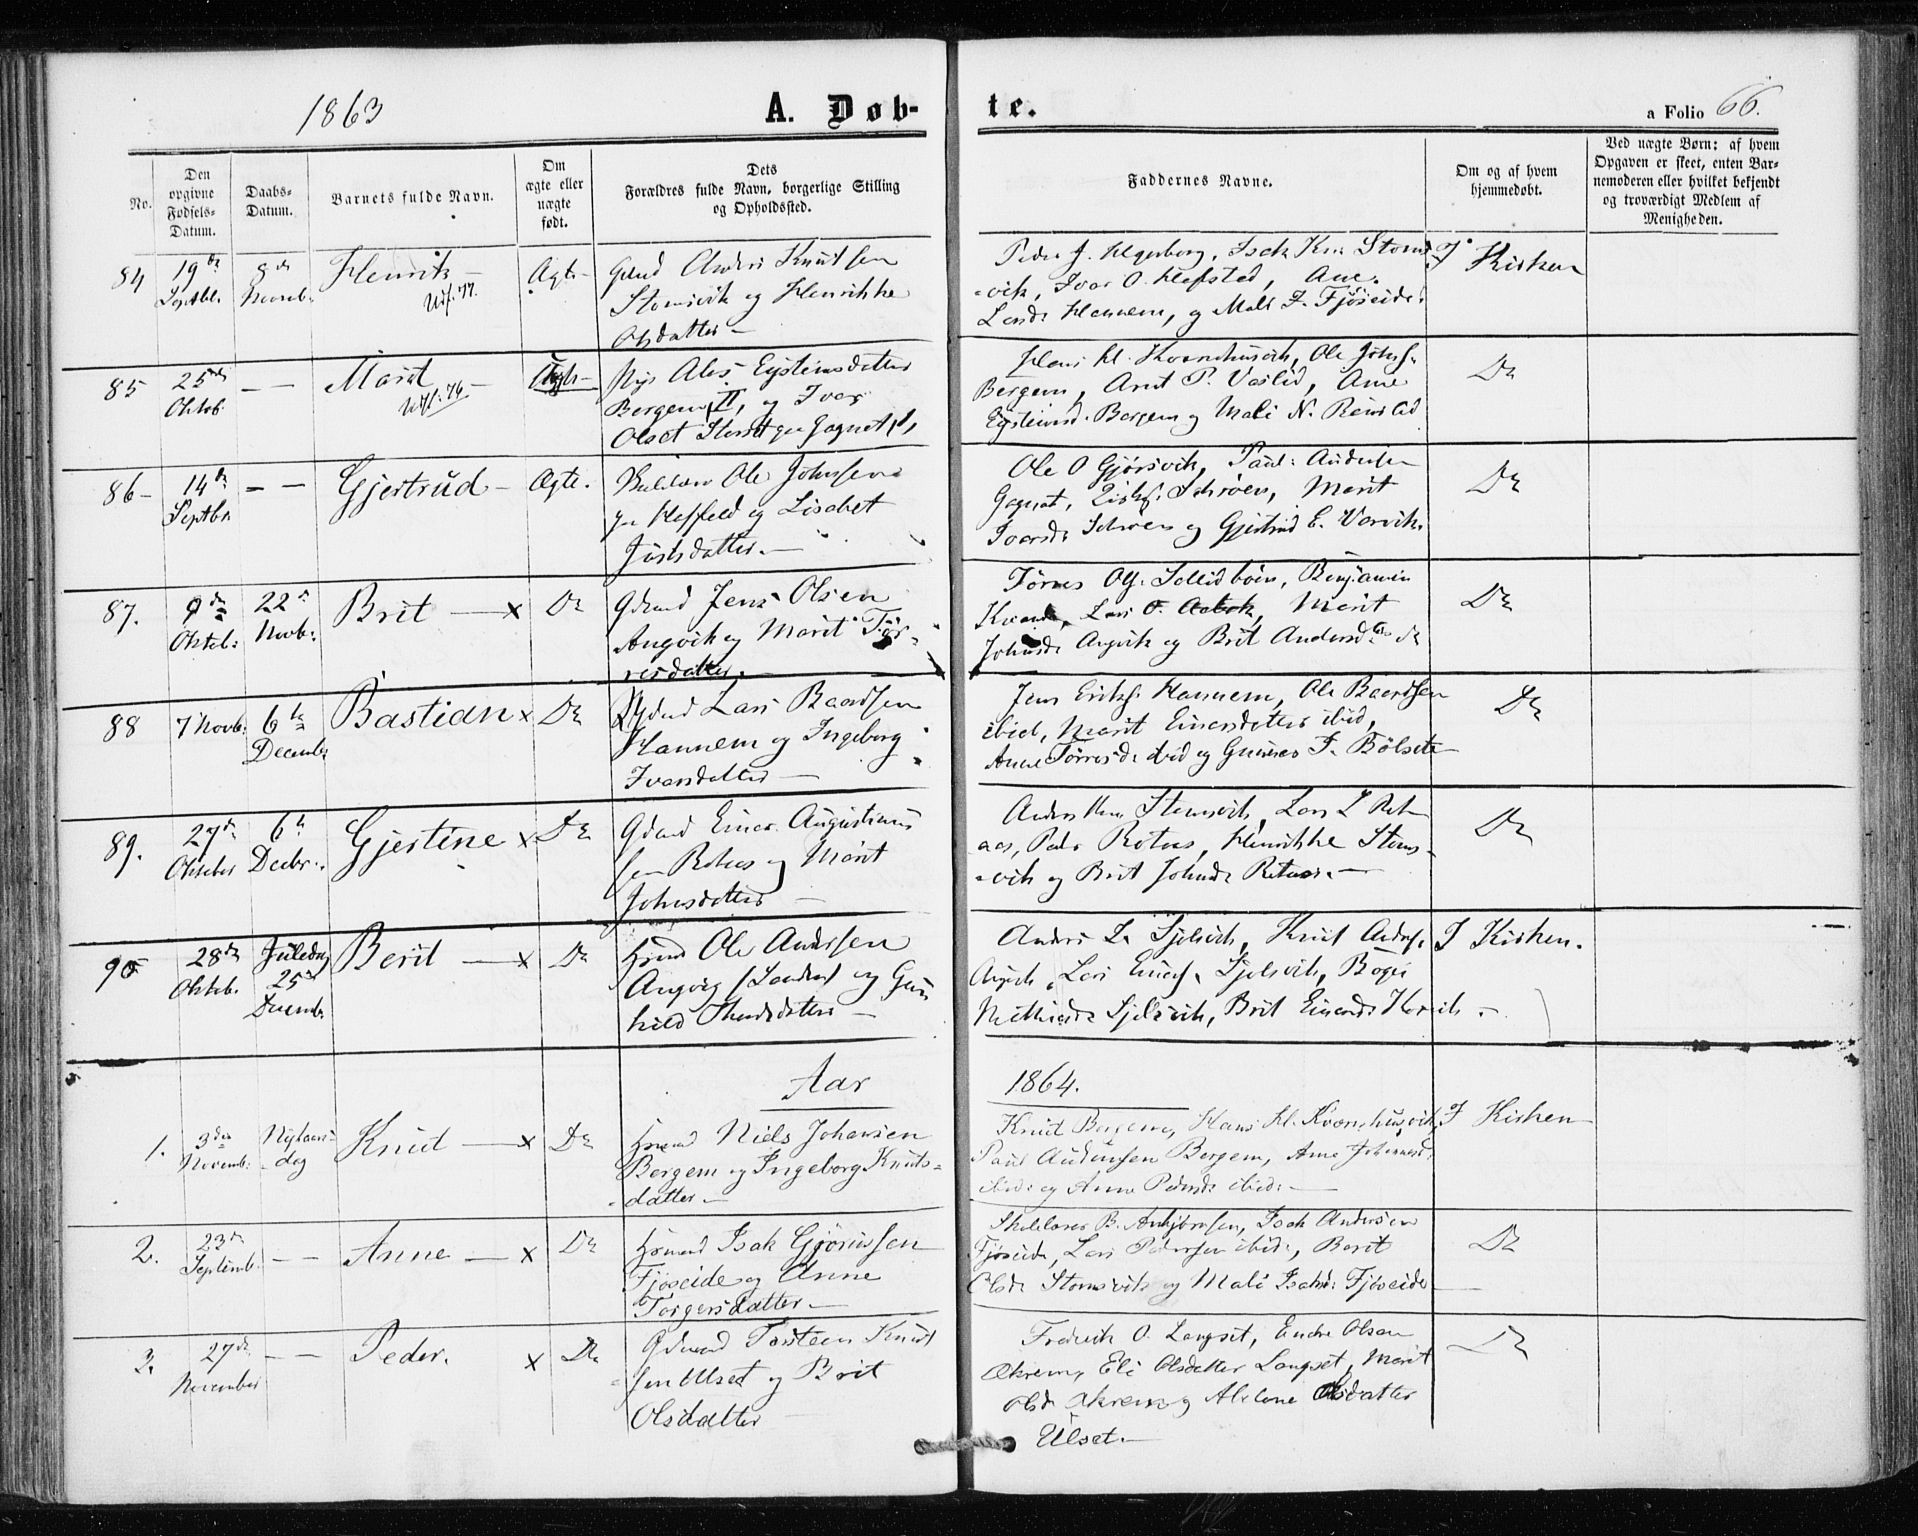 1863
A. Døb-
te.
a Folio 66.
No.
Den
opgivne
Fødsels-
Datum.
Daabs-
Datum.
Barnets fulde Navn.
Om
ægte eller
uægte
født.
Dets
Forældres fulde Navn, borgerlige Stilling
og Opholdssted.
Faddernes Navne.
Om og af hvem
hjemmedøbt.
Ved uægte Børn: af hvem
Opgaven er skeet, enten Bar-
nemoderen eller hvilket bekjendt
og troværdigt Medlem af
Menigheden.
84
19de
Septbr.
8de
Novemb.
Henrik
Udf. 77.
Ægte
Gdmd Anders Knudsen
Stomsvik og Henrikke
Olsdatter
Peder J. Hegerberg, Isak Kn. Stoms-
-vik, Ivar O. Hafsted, Ane
Larsd. Hannem, og Mali I. Fjøseide.
I Kirken
85
25de
Oktob.
— —
Marit
Udf. 76
Pige Ales Eysteinsdatter
Bergem II, og Ivar
Olset
Hans H. Kvernhusvik, Ole Johns.
Bergem, Arnt P. Vaslid, Ane
Eysteinsd. Bergem og Mali N. Remslid
Do
86
14de
Septbr.
— —
Gjertrud
Ægte.
Ole Johnsen
og Lisabet
Ole O Gjørsvik, Paul Andersen
Gagnat, Schrøen, Marit
Ivarsd. Schrøen og Gjertrud E. Vorvik.
Do
87.
9de
Oktob:
22de
Novb:
Brit
x
Do
Gdmd Jens Olsen
Angvik og Marit Tør-
resdatter.
Tørres Ols. Sollidbøen, Benjamin
Lars O. Aabak, Marit
Johnsd. Angvik og Brit Andersd. do
Do
88
7 Novb:
6te
December
Bastian
x
Do
Gdmd Lars Baardsen
Hannem og Ingeborg
Ivarsdatter
Jens Eriks. Hannem, Ole Baardsen
ibid, Marit Einersdatter ibid,
Anne Tørresd. ibid og Gunnes I. Bølset
Do
89.
27de
Oktober
6te
Decbr.
Gjertine
x
Do
Gdmd Einer Augustinus
sen Rotaas og Marit
Johnsdatter
Anders Knu Stomsvik, Lars L Rot-
aas, Peder Rotaas, Henrikke Stoms-
-vik og Brit Johnsd. Rotaas.
Do
90
28de
Oktob.
Juledag
25de
Decemb.
Berit
x
Do
Hsmd Ole Andersen
Angvig og Gun
hild
Anders L. Sjølsvik, Knut Anders.
Angvik, Lars Einers. Sjølsvik,
Sjølsvik, Brit Einersd.
I Kirken.
Aar
1864.
1.
3die
Novemb.
Nytaars-
-dag
Knud
x
Do
Hsmd Niels Johansen
Bergem og Ingeborg Knuts-
-datter
Knud Bergem, Hans H. Kvernhusvik,
Paul Andersen Bergem, Ane Johannesd.
ibid. og Anne Pedersd. ibid.
I Kirken
2.
23de
Septemb.
— —
Anne
x
Do
Hsmd Isak Gjørussen
Fjøseide og Anne
Torgersdatter
Skolelærer B. Asbjørnsen, Isak Andersen
Fjøseide, Lars Pedersen ibid., Berit
Olsd. Stomsvik og Mali Isaksd. Fjøseide
Do
3.
27de
November
— —
Peder.
x
Do
Gdmd Torsteen Knud
sen Ulset og Brit
Olsdatter
Fredrik O. Langset, Endre Olsen
Økrem, Eli Olsdatter Langset, Marit
Olsd. Økrem og Olsdatter
Ulset.
Do